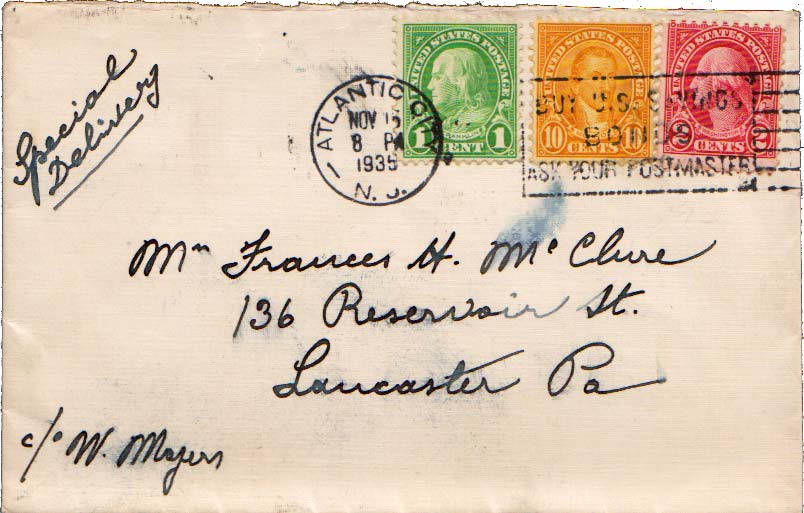 Special
Delivery
UNITED STATES POSTAGE
1 CENT 1
UNITED STATES POSTAGE
10 CENTS 10
UNITED STATES POSTAGE
2 CENTS 2
ATLANTIC CITY
NOV
8 PM
1935
N. J.
BUY U.S. SAVINGS
BONDS
ASK YOUR POSTMASTER
Mrs Frances H. McClure
136 Reservoir St.
Lancaster Pa
c/o W. Mayers